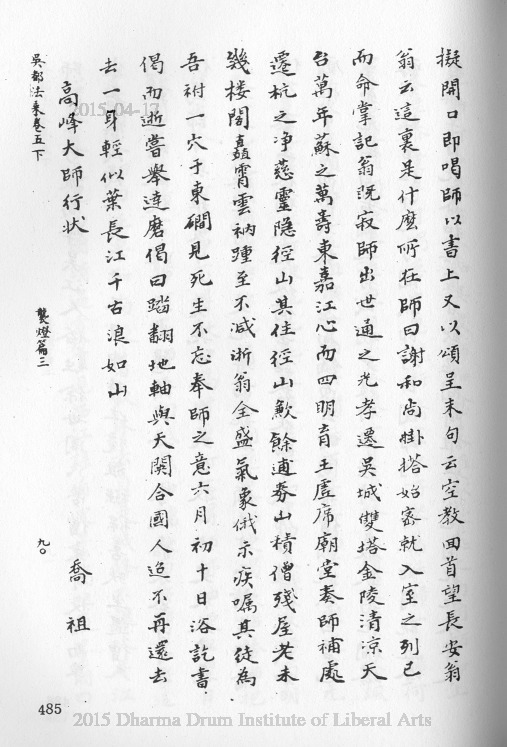 擬開口即喝師以書上又以頌呈末句云空教回首望長安翁
翁云這裏是什麼所在師曰謝和尚掛搭始密就入室之列已
而命掌記翁既寂師出世通之光孝遷吳城雙塔金陵清凉天
台萬年蘇之萬壽東嘉江心而四明育王虛席廟堂奏師補處
遷杭之净慈靈隐徑山其住徑山歉餘逋券山積僧殘屋老未
幾楼閣矗霄雲衲踵至不减浙翁全盛氣象俄示疾嘱其徒為
吾祔一穴于東磵見死生不忘奉師之意六月初十日浴訖書
偈而逝嘗舉達磨偈曰踏翻地軸與天関合國人追不再還去
去一身輕似葉長江千古浪如山
高峰大師行状
喬祖
吳都法乘卷五下
襲燈篇三
九〇
485
2015-04-17
2015 Dharma Drum Institute of Liberal Arts